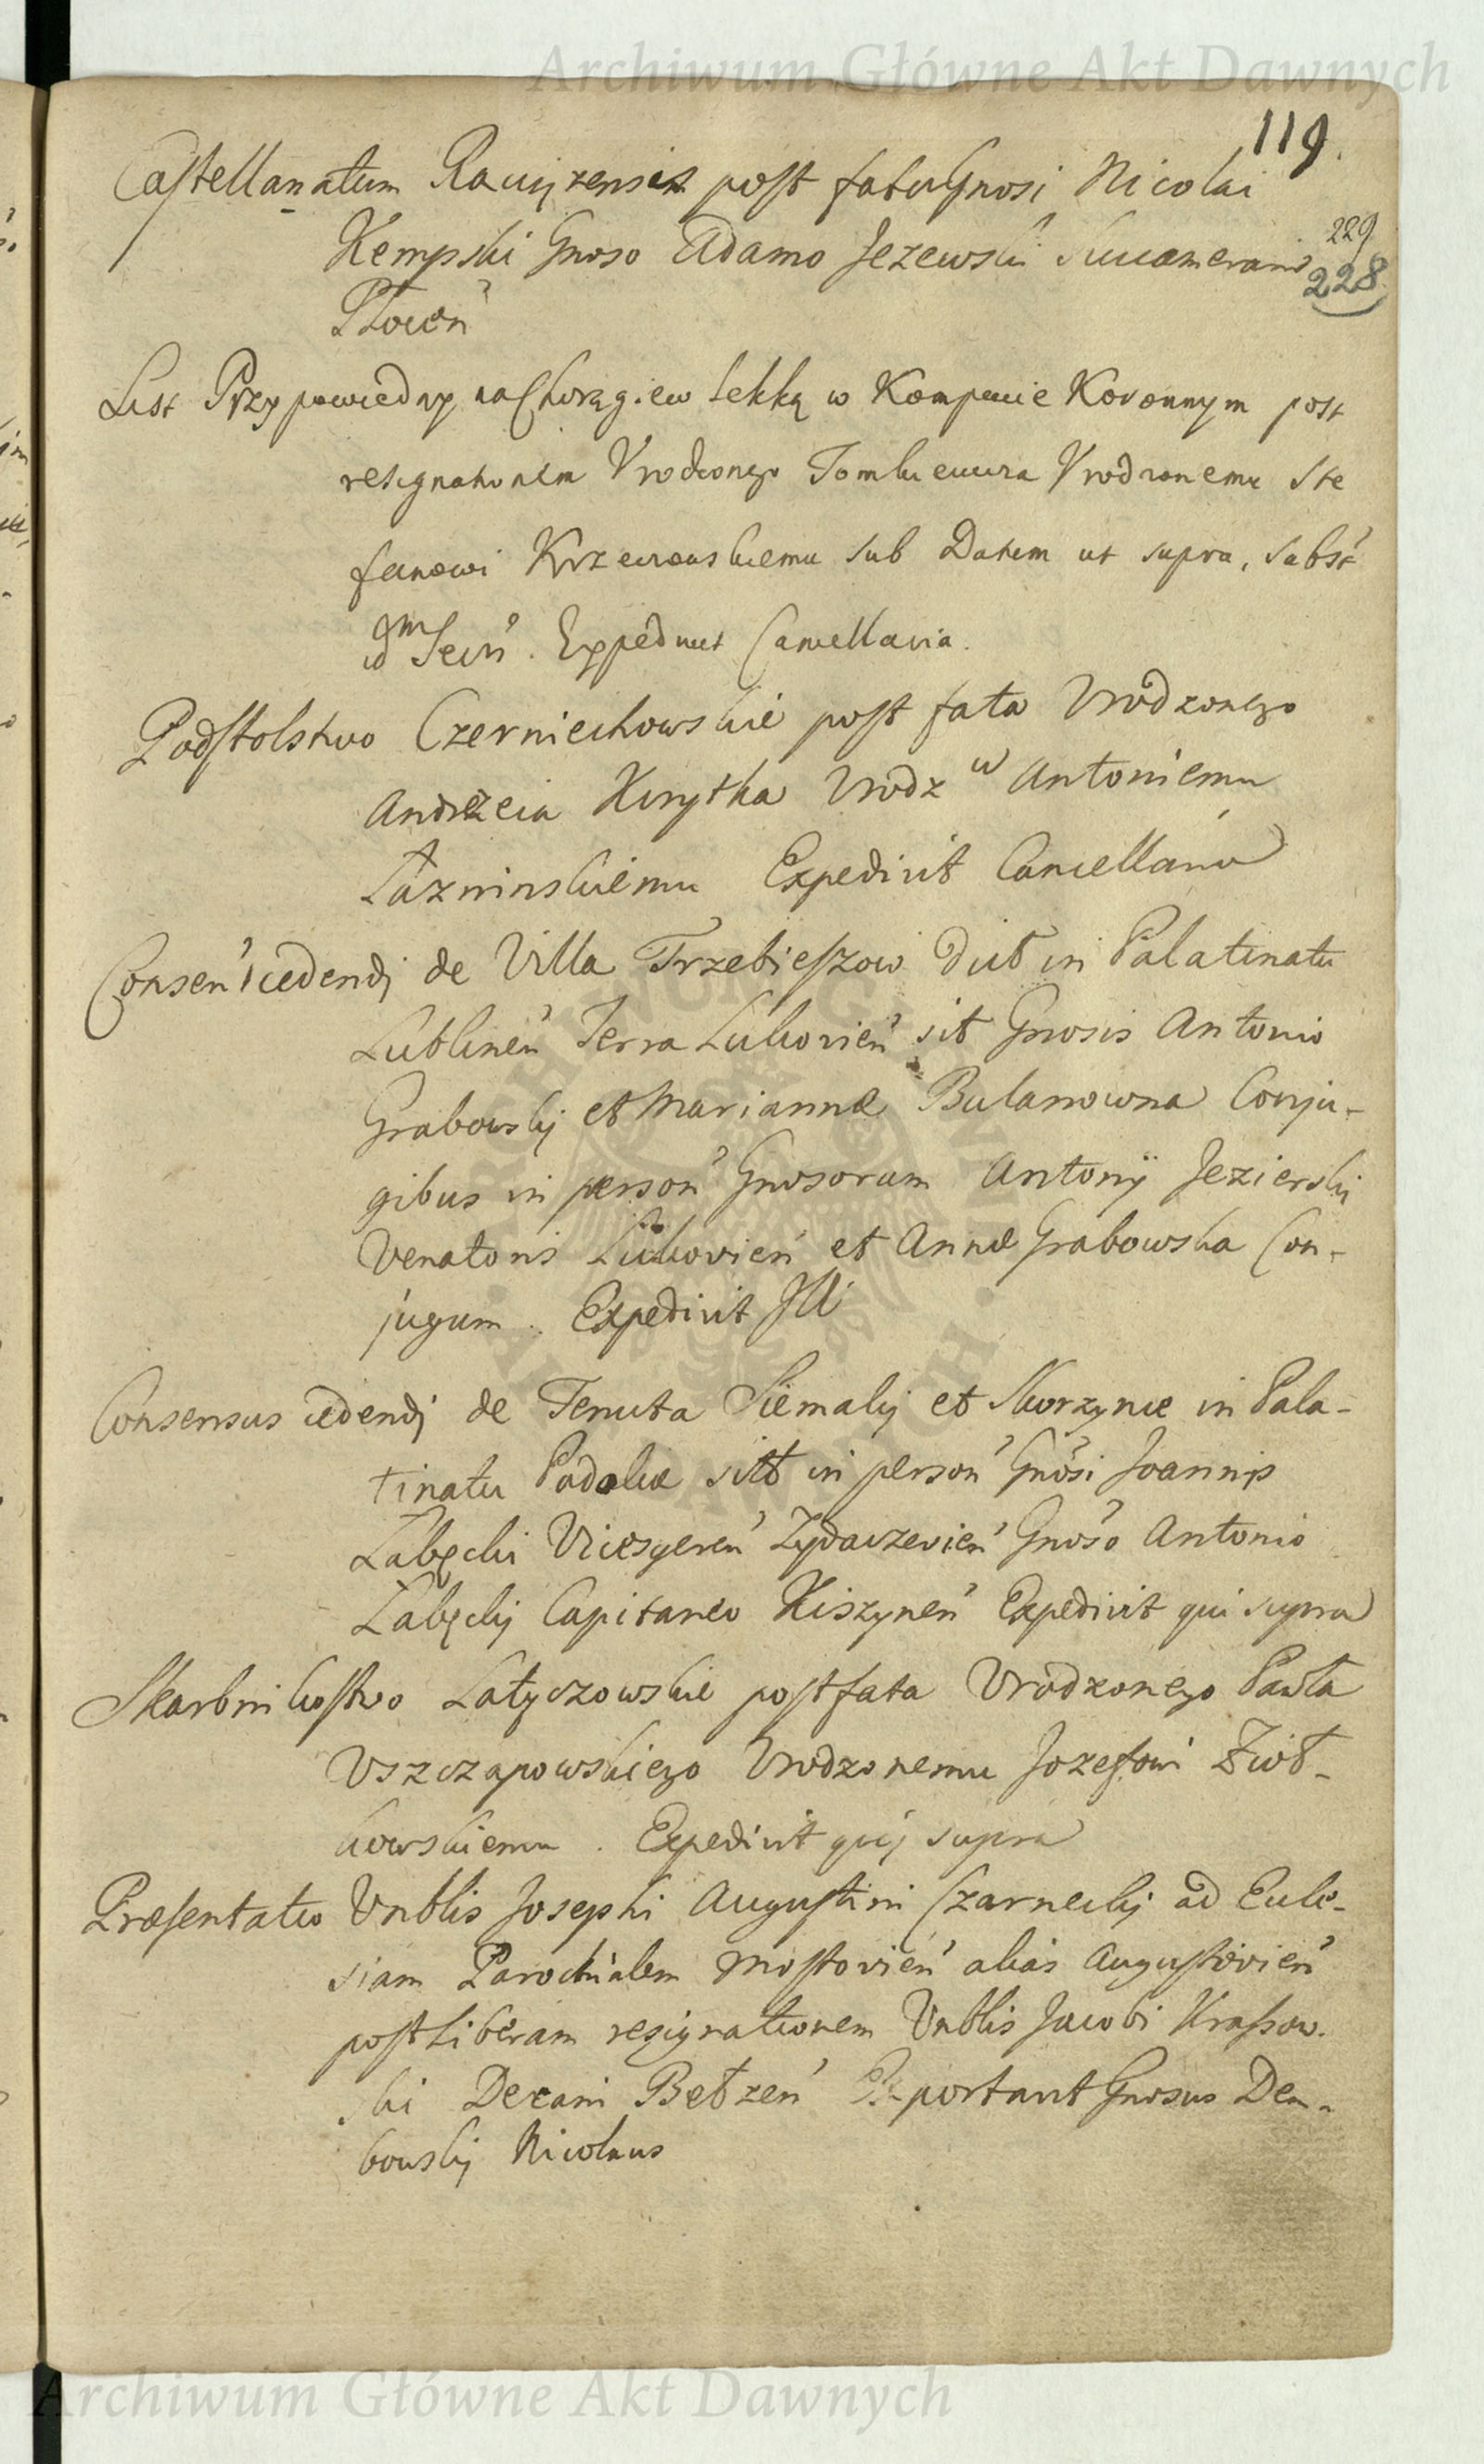 Archiwum Główne Akt Dawnych
119.
Castellanatum Raciązensis post fata Gnosi Nicolai
Kempski Gnoso Adamo Jezewski Succamerario
229
228
Płocen
List Przypowiedny na Chorągiew lekką w Kompucie Koronnym post
resignationem Vrodzonego Vrodzonemu Ste
fanowi sub Datum ut supra, Subst
idm Secrń. Expedivit Cancellaria.
Podstolstwo Czerniechowskie post fata Vrodzonego
Andrzeia Kirytka Vrodz w Antoniemu
Łazninskiemu Expedivit Cancellaria
Consen cedendj de Villa Trzebieszow dict in Palatinatu
Lublineń Terra Lukovień sit Gnosis Antonio
Grabowskj et Mariannæ Bulanowna Conju-
gibus in persoń Gnosorum Antonij Jezierski
Venatoris Lukovień et Annæ Grabowska Con-
jugum. Expedivit
Consensus cedendj de Tenuta Siemakj et Skorzynce in Pala-
tinatu Podoliæ sitt in persoń Gnosi Joannis
Łabęcki Vicesgereń Zydaczevień Gnoso Antonio
Łabęckj Capitaneo Kiszyneń Expedivit qui supra
Skarbnikostwo Latyczowskie post fata Vrodzonego Pawła
Vszczapowskiego Vrodzonemu Jozefowi Żioł-
kowskiemu. Expedivit quj supra
Præsentatio Vnblis Josephi Augustini Czarneckj ad Eccle-
siam Parochialem Mostovień alias Augustovień
post liberam resignationem Vnblis Jacobi Krassow-
ski Decani Bełzeń Exportavit Gnosus Dem-
bowskj Nicolaus
Archiwum Główne Akt Dawnych